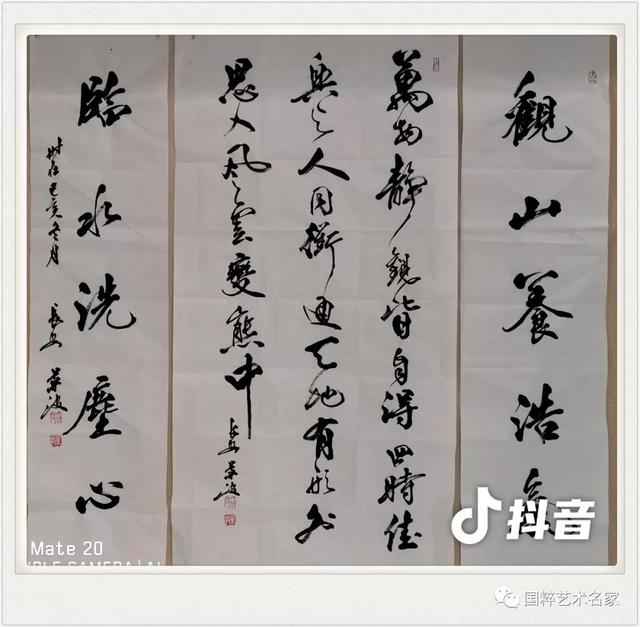 觀山養浩氣
萬物靜觀皆自得四時佳
興与人同衜通天地有形外
思入風雲變態中
長安
臨水洗塵心
時在己亥冬月
長安
抖音
Mate 20
国粹艺术名家